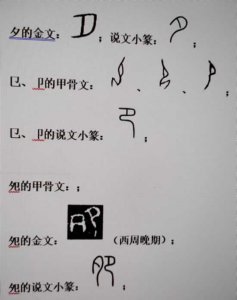 夕的金文：；说文小篆：；
巳、卩的甲骨文：、、；
巳、卩的说文小篆：；
夗的甲骨文：；
夗的金文：（西周晚期）；
夗的说文小篆：；